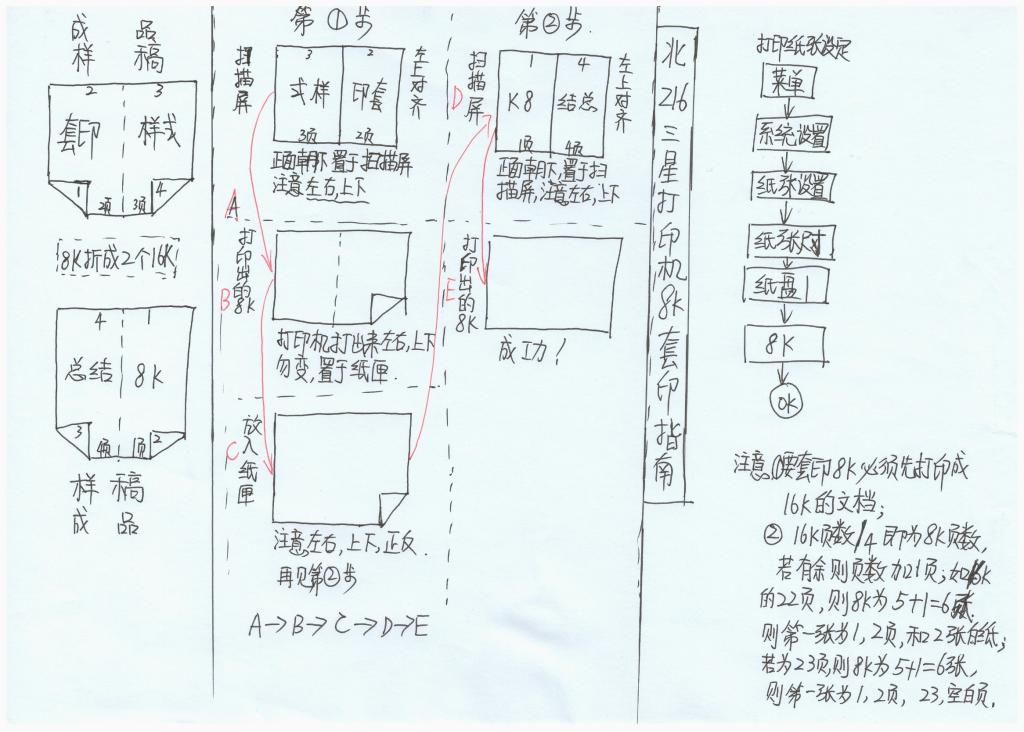 成 品
样 稿
2 3
套印 样式
1 2页 3页 4
8K折成2个16K
4 1
总结 8K
3 4页 1页 2
样 稿
成 品
第①步
扫描屏
3 2
式样 印套
3页 2页
左上对齐
正面朝下,置于扫描屏
注意左右,上下
A
打印出的8K
B
打印机打出来左右,上下
勿变,置于纸匣.
放入纸匣
C
注意,左右,上下,正反.
再见第②步
A→B→C→D→E
第②步.
扫描屏
D
1 4
K8 结总
1页 4页
左上对齐
正面朝下,置于扫
描屏,注意左右,上下
打印出的8K
E
成功!
北216三星打印机8K套印指南
打印纸张设定
菜单
系统设置
纸张设置
纸张尺寸
纸盘1
8K
OK
注意①要套印8K必须先打印成
16K的文档;
② 16K页数/4即为8K页数,
若有余则页数加1页;如16K
的22页,则8K为5+1=6张
则第一张为1,2页,和22张的纸;
若为23页,则8K为5+1=6张,
则第一张为1,2页, 23,空白页.